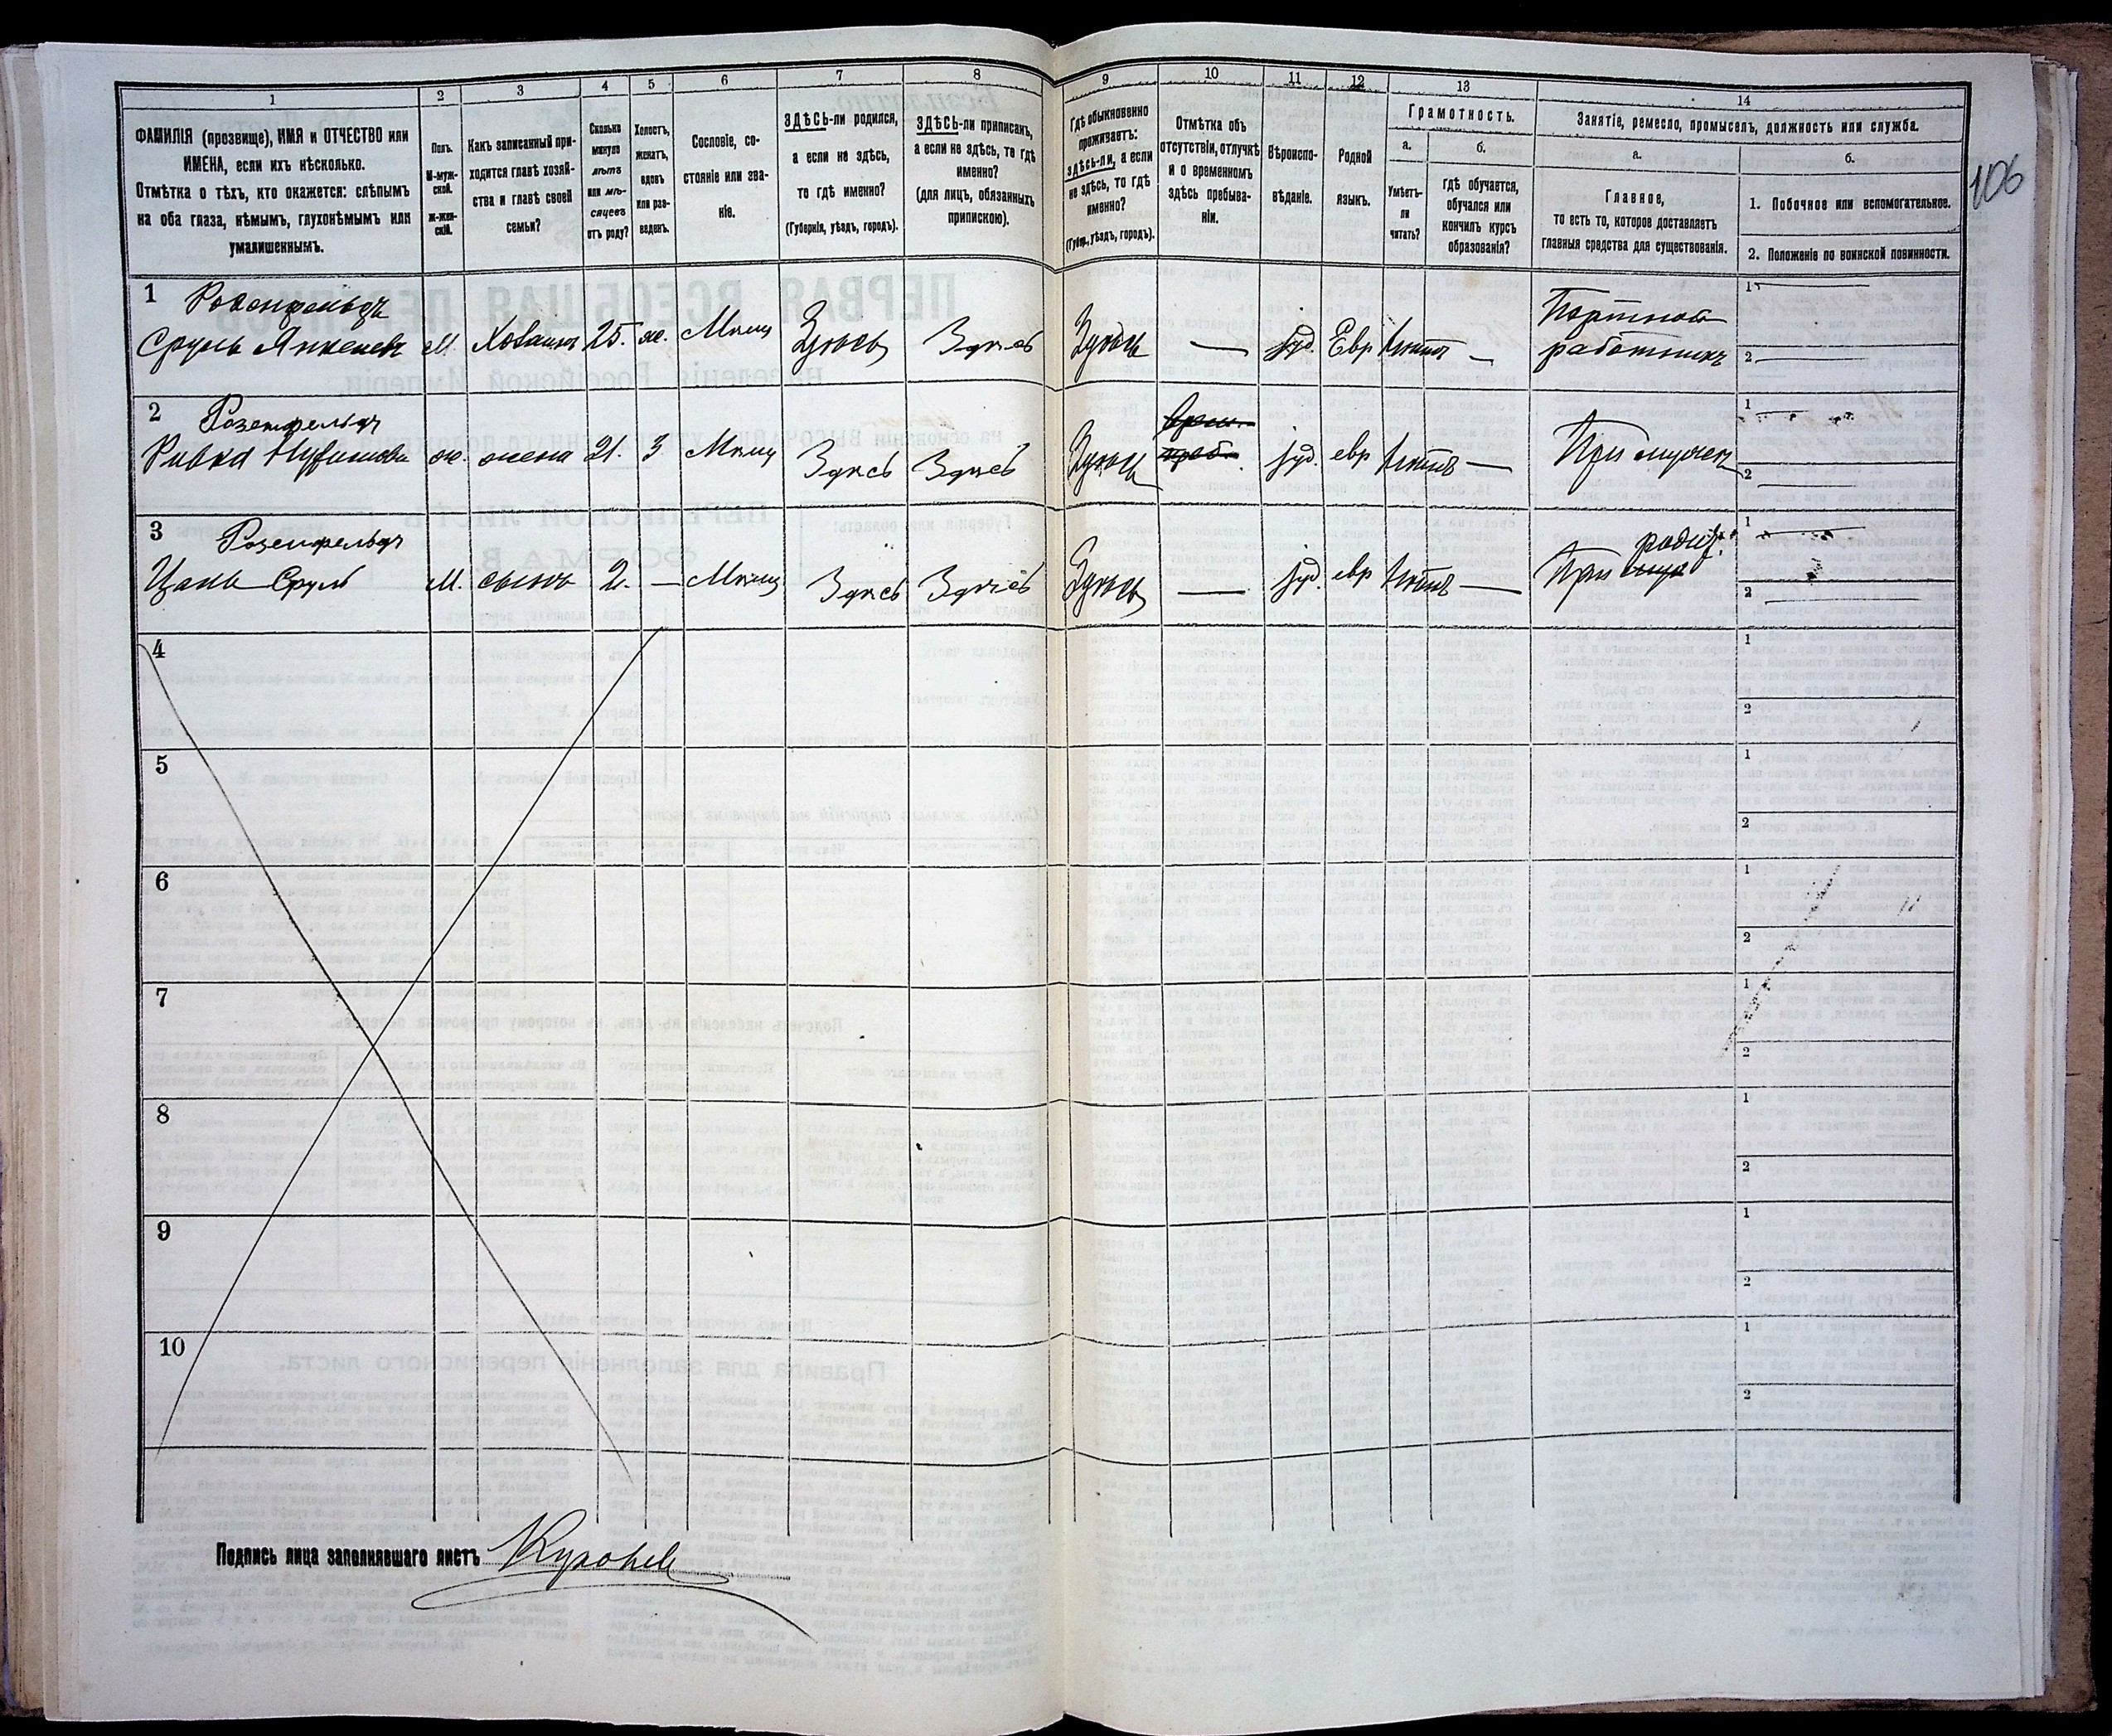 1
2
3
4
5
6
7
8
9
10
11
12
13
14
ФАМИЛІЯ (прозвище), ИМЯ и ОТЧЕСТВО или
ИМЕНА, если ихъ нѣсколько.
Отмѣтка о тѣхъ, кто окажется: слѣпымъ
на оба глаза, нѣмымъ, глухонѣмымъ или
умалишеннымъ.
Полъ.
М-муж-
ской.
Ж-жен-
скій.
Какъ записанный при-
ходится главѣ хозяй-
ства и главѣ своей
семьи?
Сколько
минуло
лѣтъ
или мѣ-
сяцевъ
отъ роду?
Холостъ,
женатъ,
вдовъ
или раз-
веденъ.
Сословіе, со-
стояніе или зва-
ніе.
ЗДѢСЬ-ли родился,
а если не здѣсь,
то гдѣ именно?
(Губернія, уѣздъ, городъ).
ЗДѢСЬ-ли приписанъ,
а если не здѣсь, то гдѣ
именно?
(для лицъ, обязанныхъ
припискою).
Гдѣ обыкновенно
проживаетъ:
здѣсь-ли, а если
не здѣсь, то гдѣ
именно?
(Губер., уѣздъ, городъ).
Отмѣтка объ
отсутствіи, отлучкѣ
и о временномъ
здѣсь пребыва-
ніи.
Вѣроиспо-
вѣданіе.
Родной
языкъ.
Грамотность.
а.
б.
Умѣетъ-
ли
читать?
Гдѣ обучается,
обучался или
кончилъ курсъ
образованія?
Занятіе, ремесло, промыселъ, должность или служба.
а.
б.
Главное,
то есть то, которое доставляетъ
главныя средства для существованія.
1. Побочное или вспомогательное.
2. Положеніе по воинской повинности.
106
1 Розенфельдъ
Сруль Янкелев М. Хозяинъ 25. ж. Мѣщ Здѣсь Здѣсь Здѣсь — іуд. Евр — Портной
работникъ
1
2
2 Розенфельдъ
Ривка ж. жена 21. З Мѣщ Здѣсь Здѣсь Здѣсь врем.
преб. іуд. евр — При мужѣ
1
2
3 Розенфельдъ
Сруль М. сынъ 2. — Мѣщ Здѣсь Здѣсь Здѣсь — іуд. евр — При родит.
1
2
4
1
2
5
1
2
6
1
2
7
1
2
8
1
2
9
1
2
10
1
2
Подпись лица заполнявшаго листъ